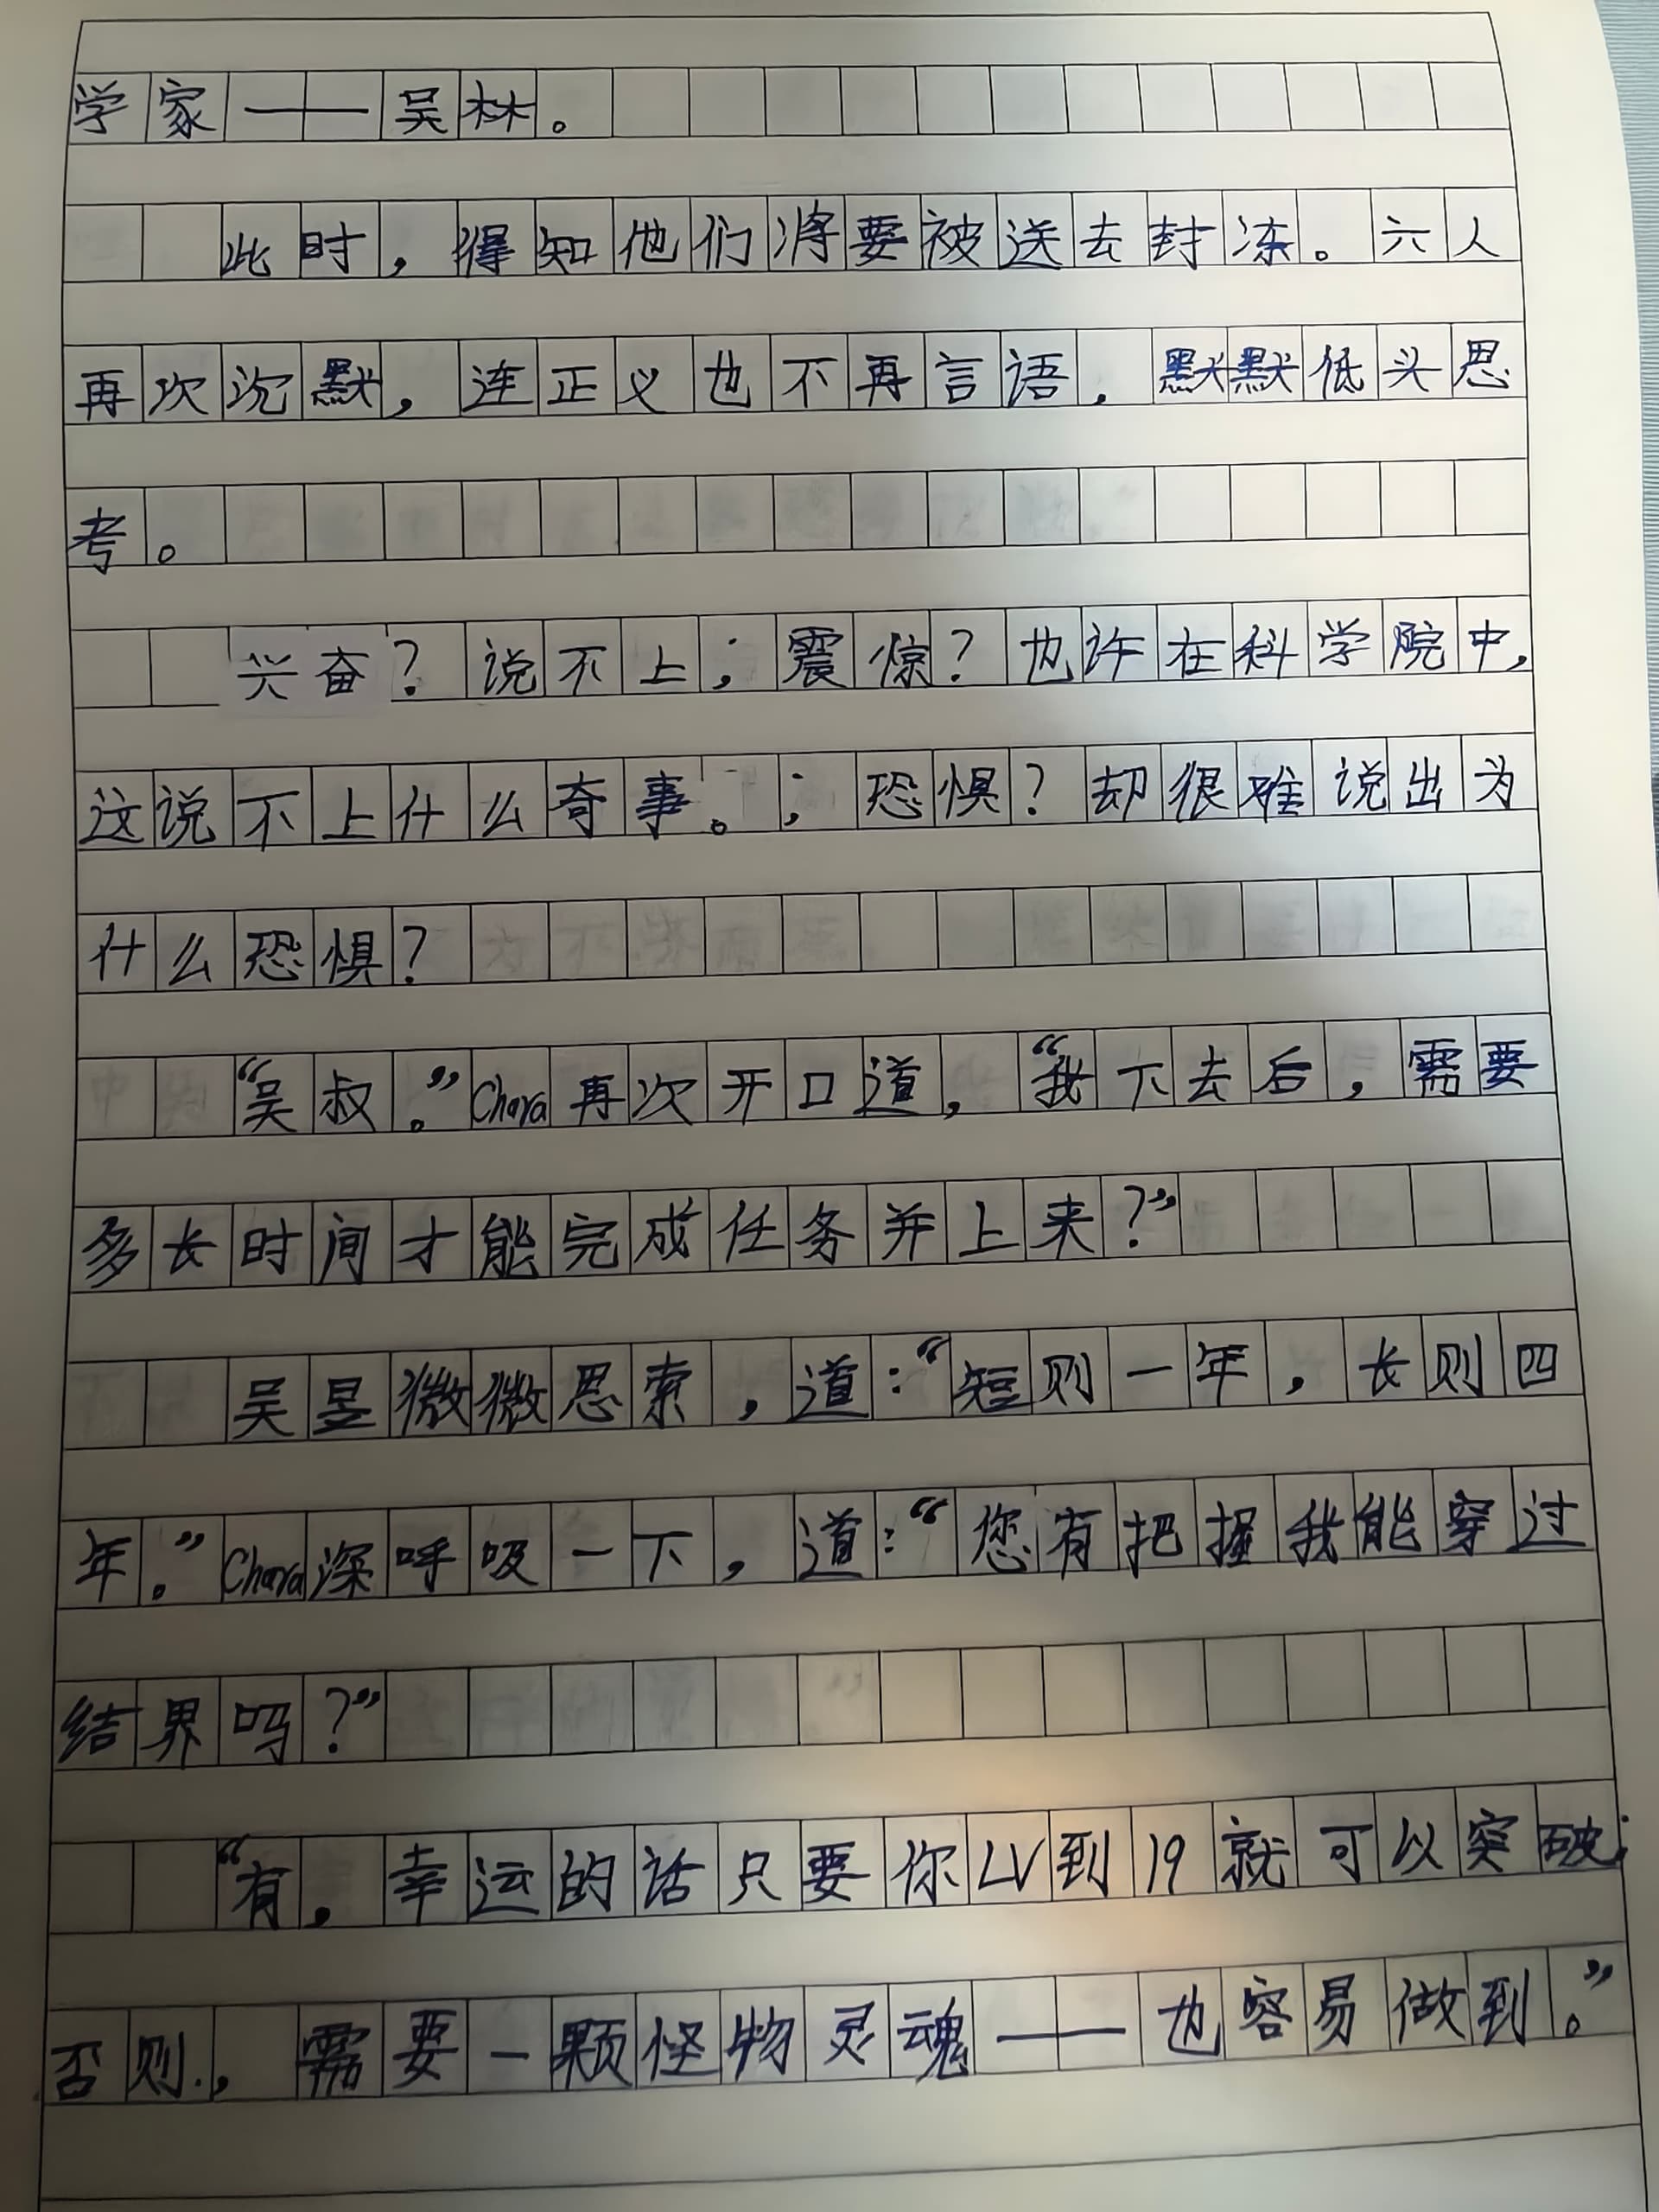 学家——吴林。
此时，得知他们将要被送去封冻。六人
再次沉默，连正义也不再言语，默默低头思
考。
兴奋？说不上；震惊？也许在科学院中，
这说不上什么奇事。；恐惧？却很难说出为
什么恐惧？
“吴叔。”Chara再次开口道，“我下去后，需要
多长时间才能完成任务并上来？”
吴昱微微思索，道：“短则一年，长则四
年。”Chara深呼吸一下，道：“您有把握我能穿过
结界吗？”
“有，幸运的话只要你LV到19就可以突破；
否则，需要一颗怪物灵魂——也容易做到。”